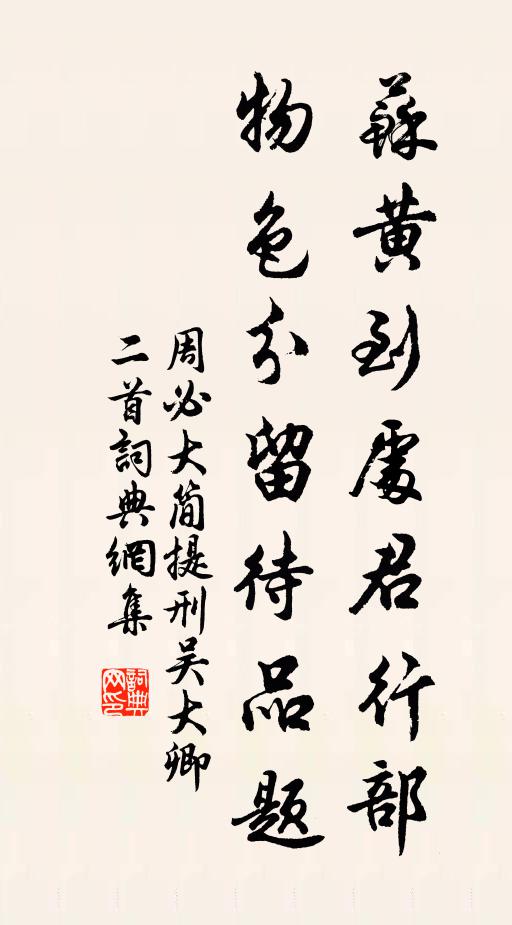 蘇黃到處君行部
物色分留待品題
周必大簡提刑吴大卿
二首詞典網集
詞典
网印